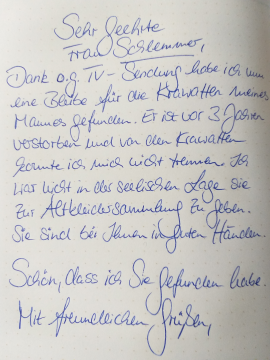 Sehr Geehrte
Frau Schlemmer,
Dank o.g. TV-Sendung habe ich nun
eine Bleibe für die Krawatten meines
Mannes gefunden. Er ist vor 3 Jahren
verstorben und von den Krawatten
konnte ich mich nicht trennen. Ich
war nicht in der seelischen Lage sie
zur Altkleidersammlung zu geben.
Sie sind bei Ihnen in guten Händen.
Schön, dass ich Sie gefunden habe.
Mit freundlichen Grüßen,